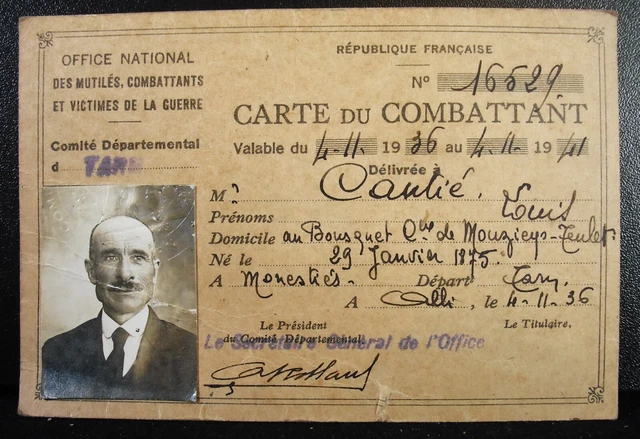 OFFICE NATIONAL
DES MUTILÉS, COMBATTANTS
ET VICTIMES DE LA GUERRE
Comité Départemental
d TARN
RÉPUBLIQUE FRANÇAISE
Nº 16529
CARTE DU COMBATTANT
Valable du 4-11. 1936 au 4-11. 1941
Délivrée à
M? Cantié.
Prénoms Louis
Domicile au Bousquet Cne de Mouzieys-Teulet
Né le 29 Janvier 1875.
A Monestiés. Départ Tarn.
A Albi, le 4-11-36
Le Président
du Comité Départemental,
Le Titulaire.
Le Secrétaire Général de l'Office